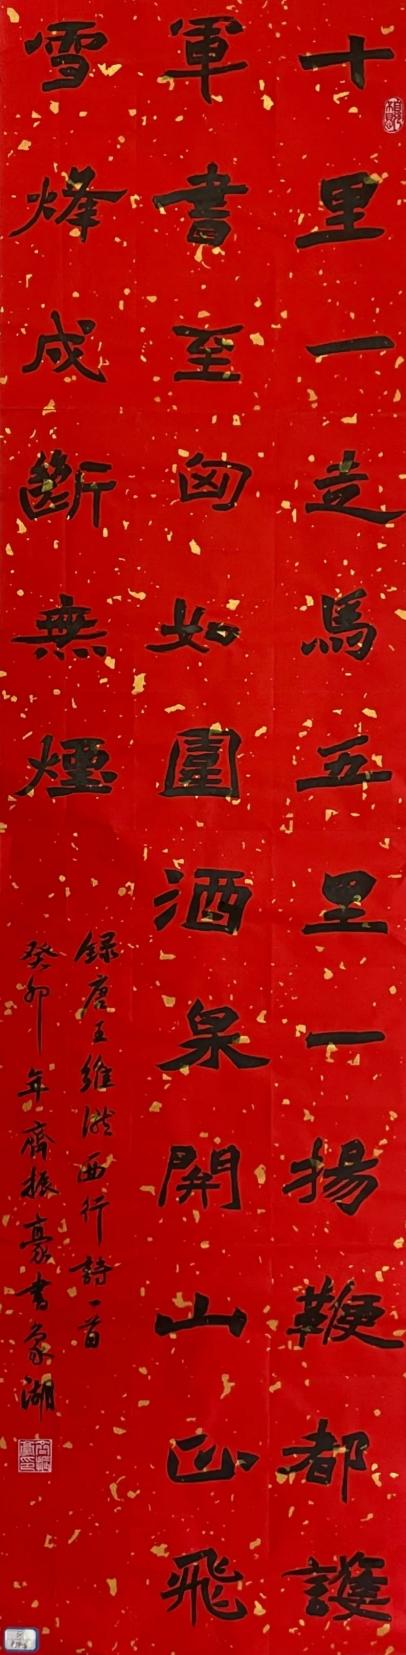 十里一走馬五里一揚鞭都護
軍書至匈奴圍酒泉開山正飛
雪烽戍斷無煙
錄唐王維隴西行詩一首
癸卯年齊振豪書象湖